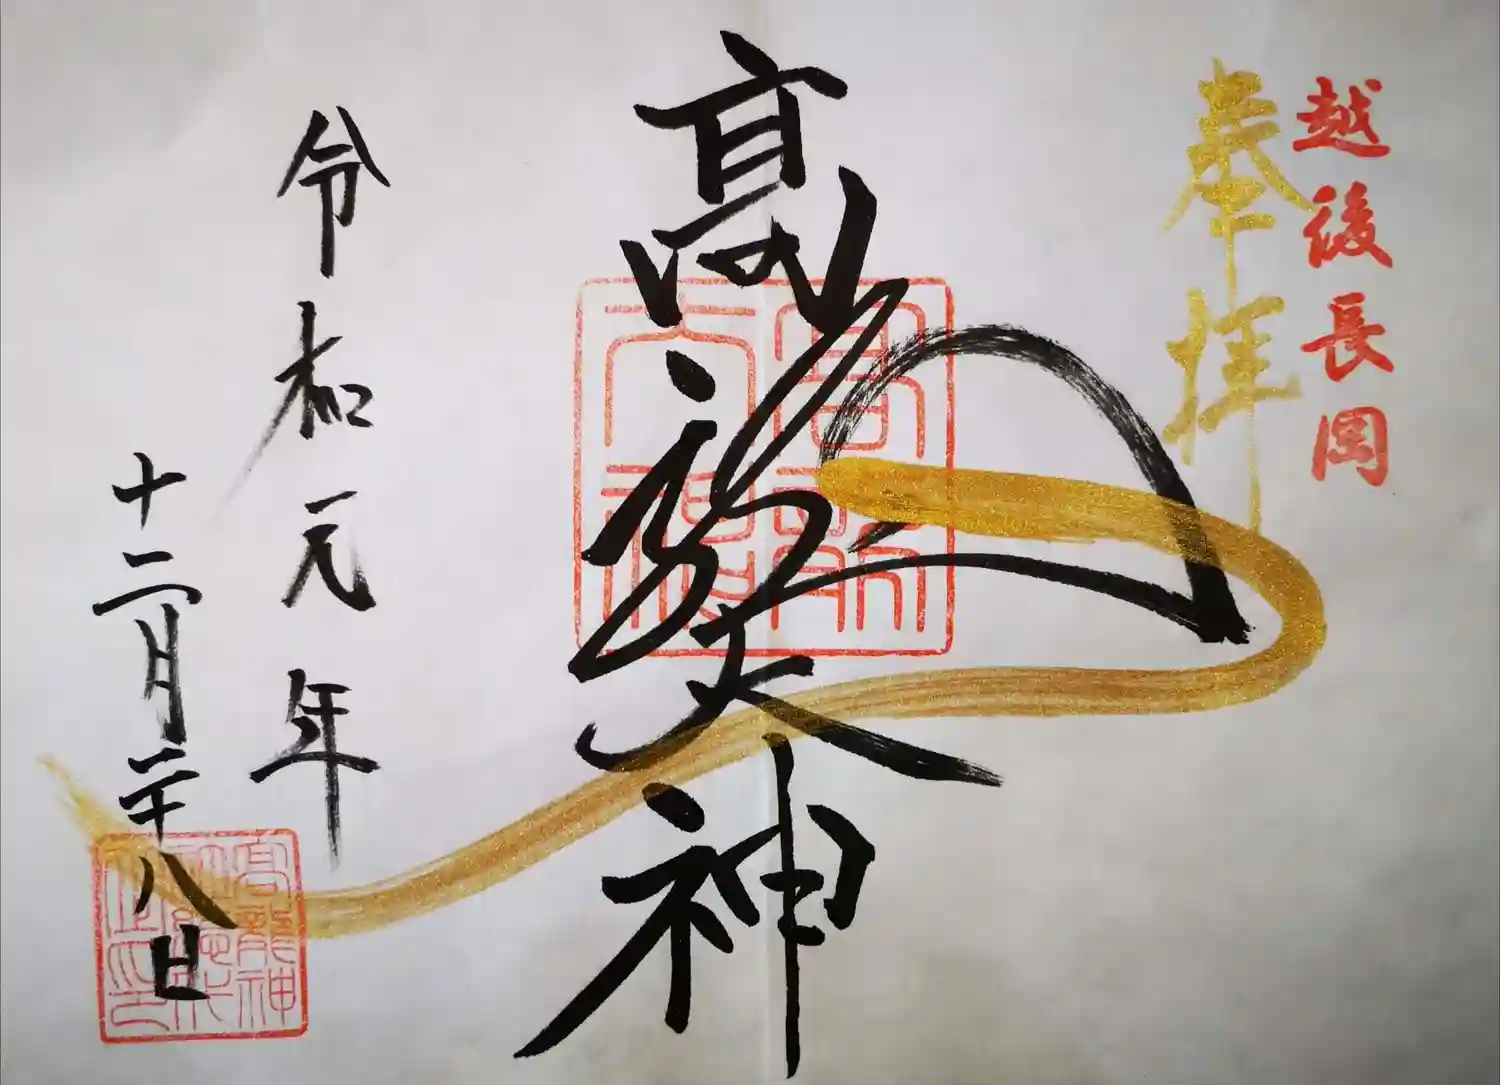 越後長岡
奉拝
髙龍大神
高龍大神
令和元年
十二月二十八日